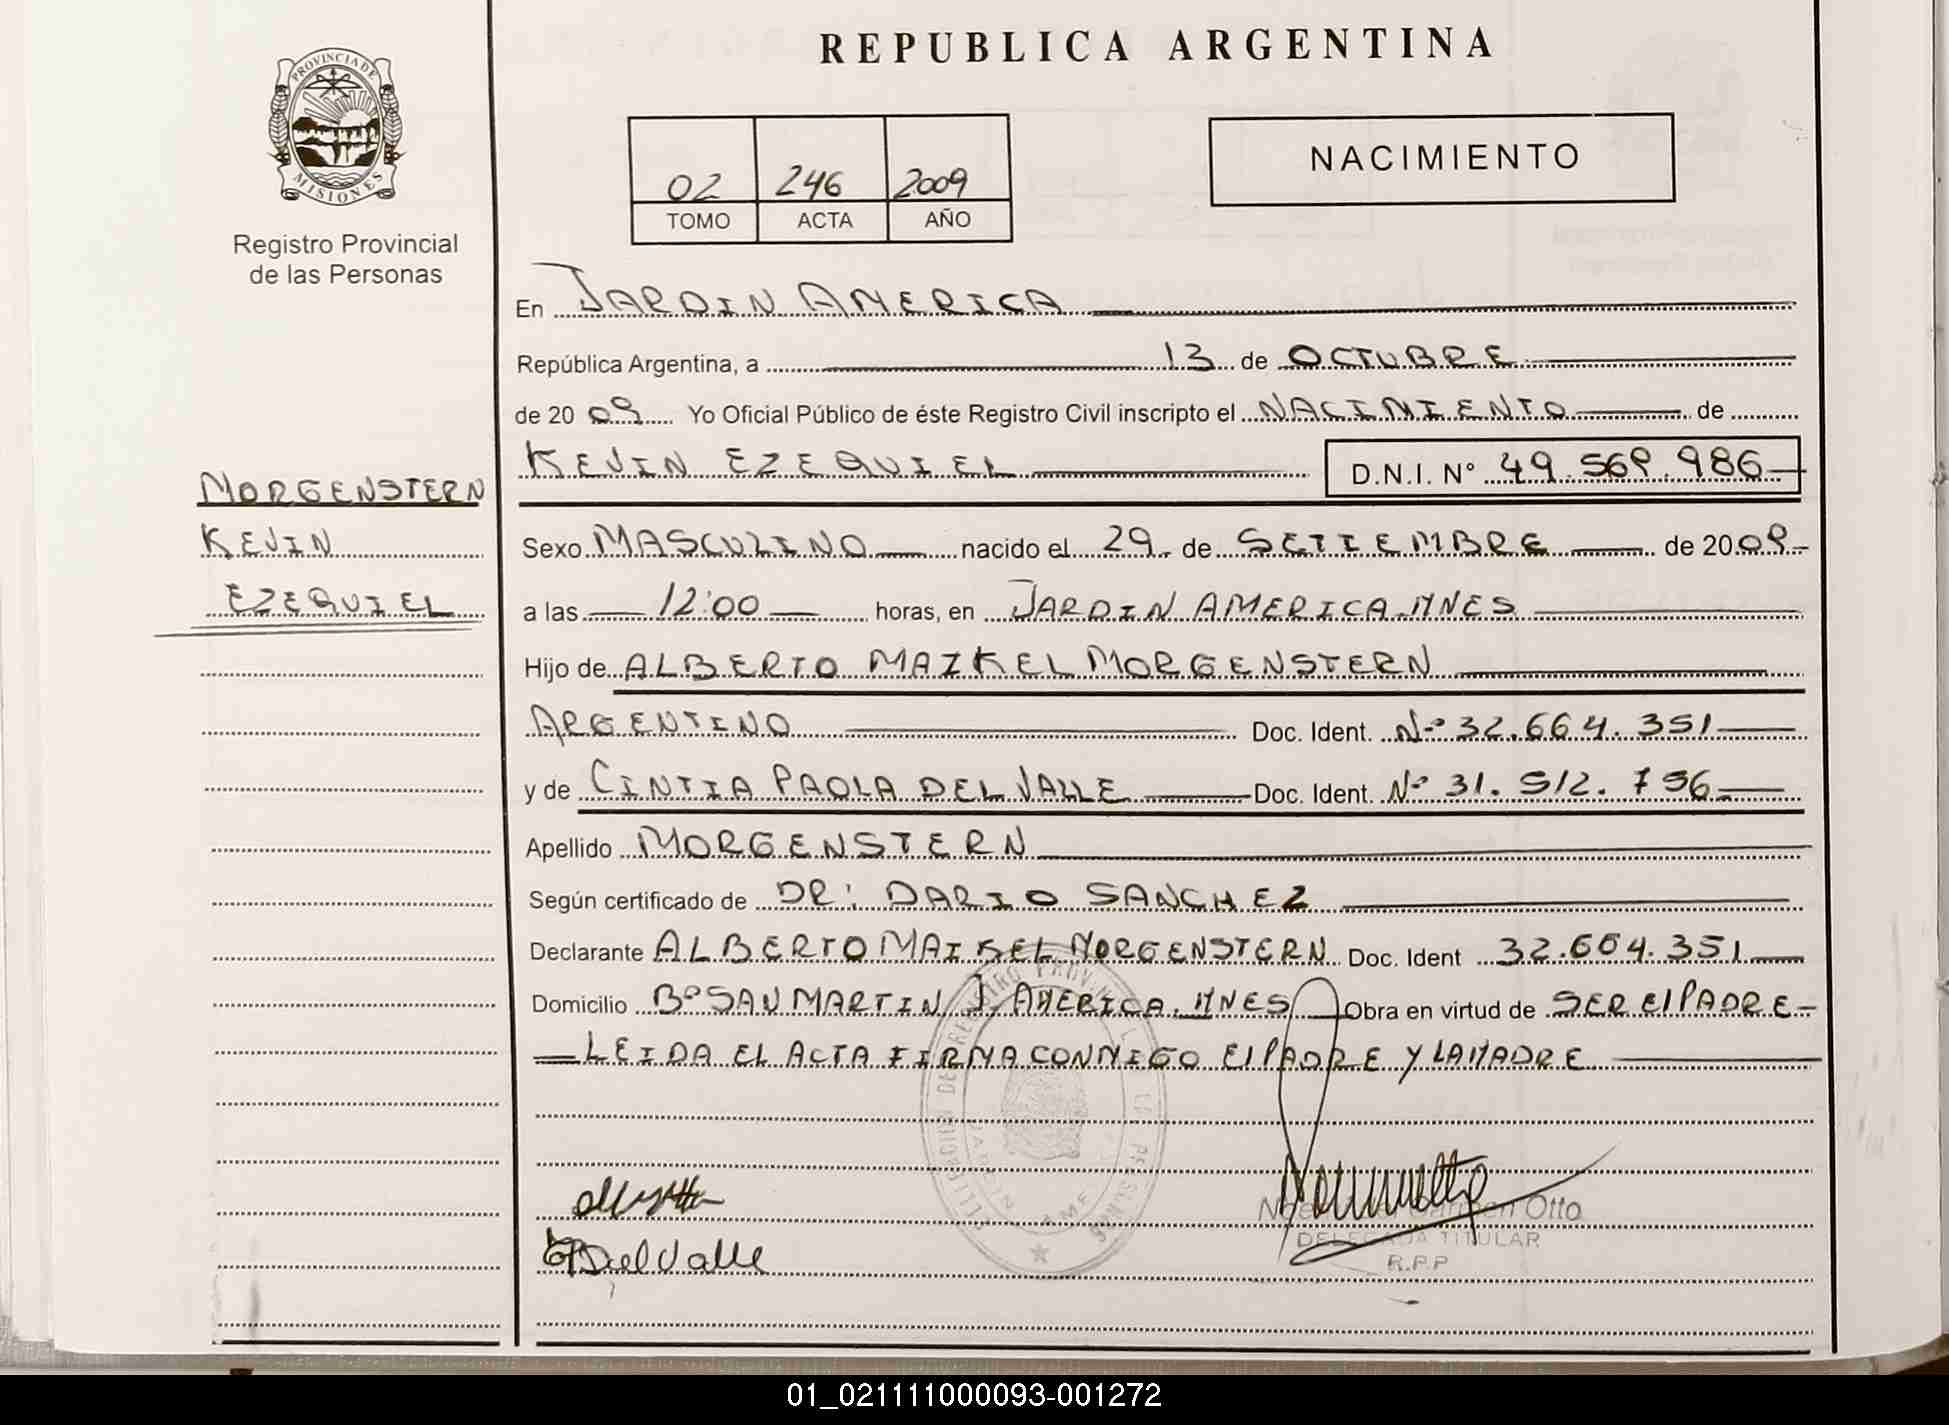 REPUBLICA ARGENTINA
PROVINCIA DE MISIONES
Registro Provincial
de las Personas
02 246 2009
TOMO ACTA AÑO
NACIMIENTO
En JARDIN AMERICA
República Argentina, a 13 de OCTUBRE
de 2009 Yo Oficial Público de éste Registro Civil inscripto el NACIMIENTO de
KEVIN EZEQUIEL D.N.I. Nº 49.569.986
MORGENSTERN
KEVIN
EZEQUIEL
Sexo MASCULINO nacido el 29 de SETIEMBRE de 2009
a las 12:00 horas, en JARDIN AMERICA. MNES
Hijo de ALBERTO MAIKEL MORGENSTERN
ARGENTINO Doc. Ident. Nº 32.664.351
y de CINTIA PAOLA DEL VALLE Doc. Ident. Nº 31.512.756
Apellido MORGENSTERN
Según certificado de DR: DARIO SANCHEZ
Declarante ALBERTO MAIKEL MORGENSTERN Doc. Ident 32.664.351
Domicilio Bº SAN MARTIN J. AMERICA. MNES Obra en virtud de SER El PADRE
LEIDA EL ACTA FIRMA CONMIGO El PADRE Y LA MADRE
del Valle
Otto
DELEGADA TITULAR
R.P.P
01_021111000093-001272